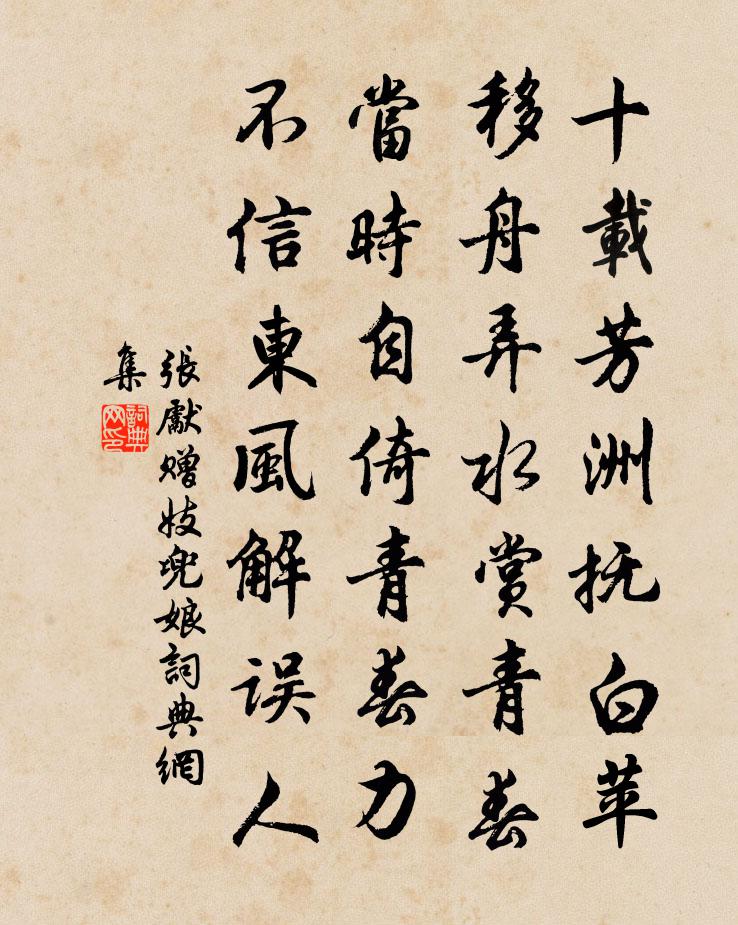 十載芳洲抚白苹
移舟弄水赏青春
當時自倚青春力
不信東風解误人
張獻赠妓兜娘詞典網
集
詞典网印